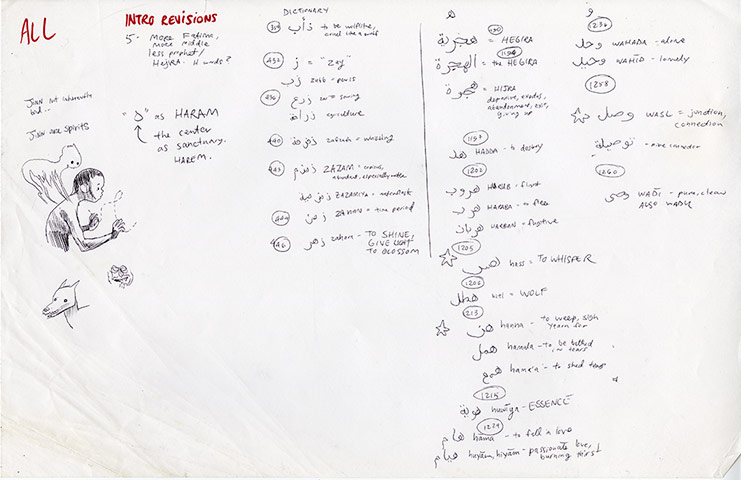 ALL
INTRO REVISIONS
5- MORE Fatima,
more middle
less prophet/
Hejira - H words?
Jian not inherently
bad..
Jian are spirits
"ه" as HARAM
the center
as sanctuary.
HAREM.
DICTIONARY
ذأب to be wolflike,
cruel like a wolf
ز = "Zey"
زب zebb - penis
436
زرع zar = sowing
زراعة agriculture
440
زفزف zafzafa = whizzing
زمزم ZAMZAM = copious,
abundant, especially water
زمن ZAMAN - time period
446 زهر zahara - TO SHINE,
GIVE LIGHT
TO BLOSSOM
ه
هجرية = HEGIRA
1194
الهجرة = the HEGIRA
هجرة = HIJRA
departure, exodus,
abandonment, exit,
giving up
1197
هد HADDA - to destroy
1202
هروب HARUB - flight
هرب HARABA - to flee
هربان HARBAN - fugitive
1205
هس hass = TO WHISPER
1206
هطل hitl = WOLF
1213
هن hanna - to weep, sigh
yearn for
همل hamala - to be bathed
in tears
همع hama'a - to shed tears
1215
هوية huwiya - ESSENCE
1224
هام hama - to fall in love
هيام huyām, hiyām - passionate love,
burning thirst
و
1236
وحد WAHADA - alone
وحيد WAHID - lonely
1258
وصل WASL = junction,
connection
توصيلة - connection
1260
WADI - pure, clean
ALSO WADU